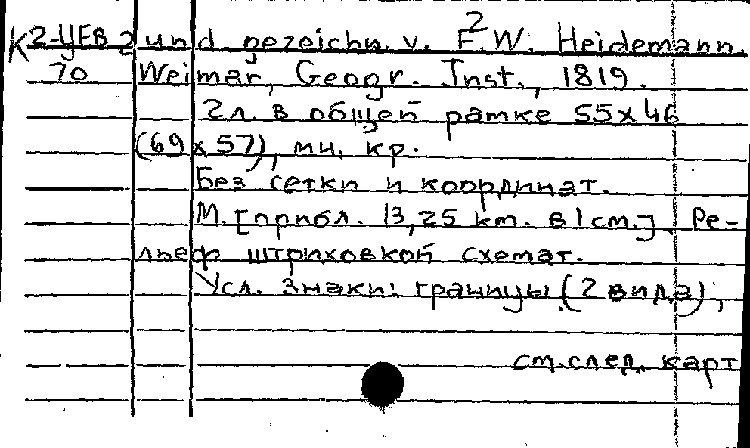 2
К2-ЦЕВ 2 und gezeichn. v. F.W. Heidemann.
70 Weimar, Geogr. Inst., 1819.
2л. в общей рамке 55x46
(69x57), мн. кр.
Без сетки и координат.
М. [прибл. 13,25 km. в 1 см.]. Ре-
льеф штриховкой схемат.
Усл. знаки: границы (2 вида),
см. след. карт